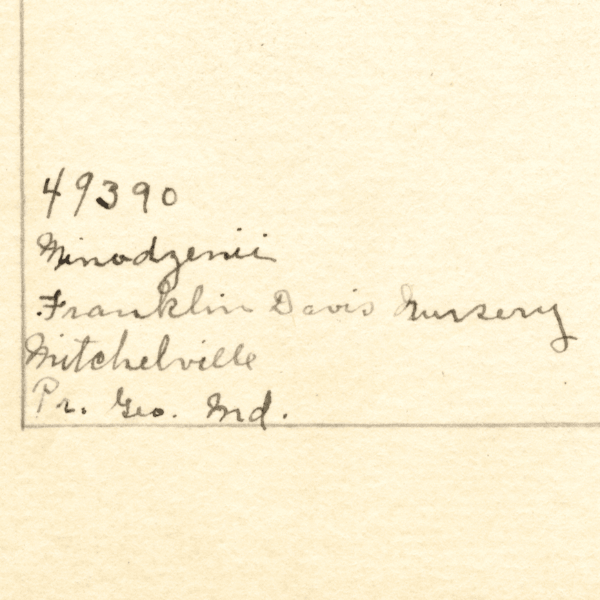 49390
Minodzenii
Franklin Davis Nursery
Mitchelville
Pr. Geo. Md.